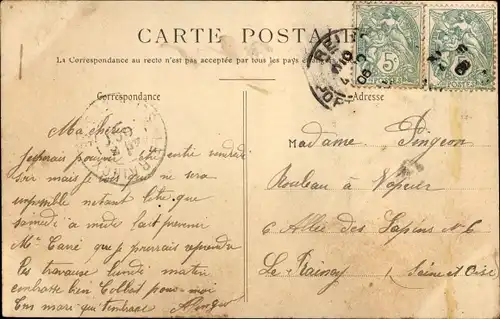 CARTE POSTALE
La Correspondance au recto n'est pas acceptée par tous les pays étrangers
Correspondance
Adresse
5
Ma chérie
J'esperais pouvoir être entré vendredi
soir mais je vois que ce ne sera
impossible n'etant libre que
samedi à midi faut prévenir
Mr que je pourrais reprendre
les travaux lundi matin
embrasse bien pour moi
ton mari qui t'embrasse
Madame Pingeon
Rouleau à Vapeur
6 Allée des Sapins No 6
Le Raincy (Seine et Oise)